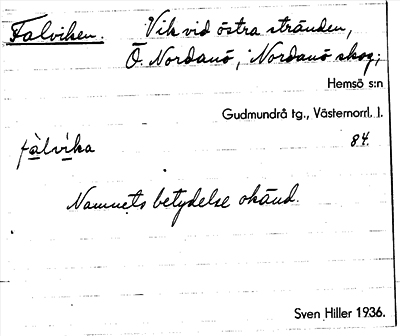 Falviken. Vik vid östra stranden,
Ö. Nordanö, Nordanö skog;
Hemsö s:n
Gudmundrå tg., Västernorrl. l.
fàlvika 84.
Namnets betydelse okänd.
Sven Hiller 1936.